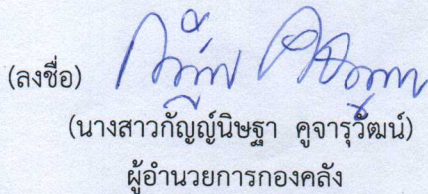 (ลงชื่อ)
(นางสาวกัญญ์นิษฐา คูจารุวัฒน์)
ผู้อำนวยการกองคลัง